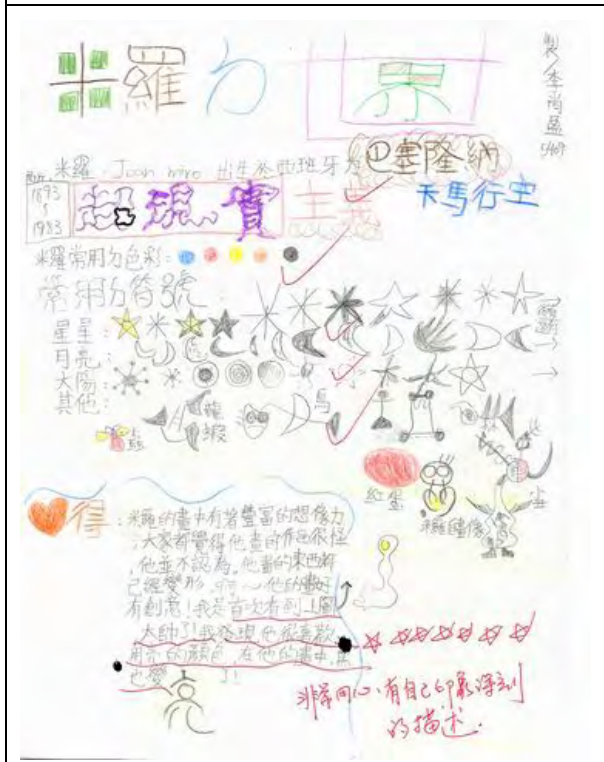 米羅ㄉ
製/李尚盈
5年69
米羅,Joan miro 出生於西班牙ㄉ巴塞隆納
西元1893
~
1983
超現實主義
天馬行空
米羅常用ㄉ色彩:
常用ㄉ符號:
星星:
月亮:
太陽:
其他:
龍蝦
鳥
紅蛋
米羅自畫像
心得:米羅的畫中有著豐富的想像力
,大家都覺得他畫的作品很怪
,他並不認為,他畫的東西都
已經變形,啊~他的畫好
有創意!我是首次看到上圖
太帥了!我發現他很喜歡
用亮的顏色,在他的畫中,
也變 了!
亮
非常用心,有自己印象深刻
的描述.